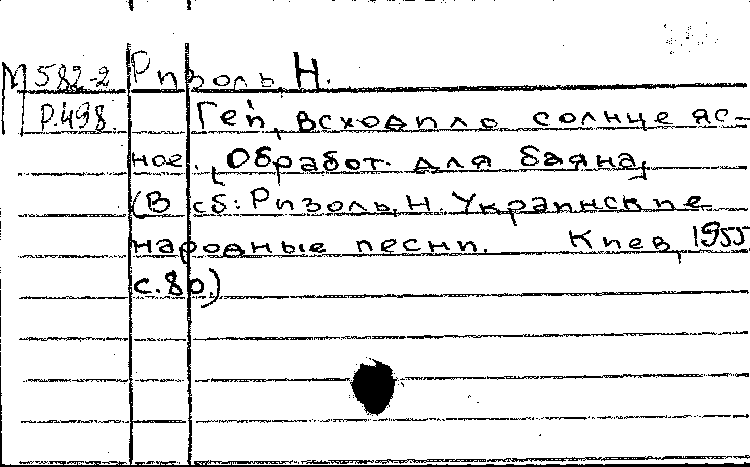 М 582-2 Ризоль, Н.
Р.498. Гей, всходило солнце яс-
ное. [Обработ. для баяна]
(В сб: Ризоль, Н. Украинские
народные песни. Киев, 1955
с.80.)